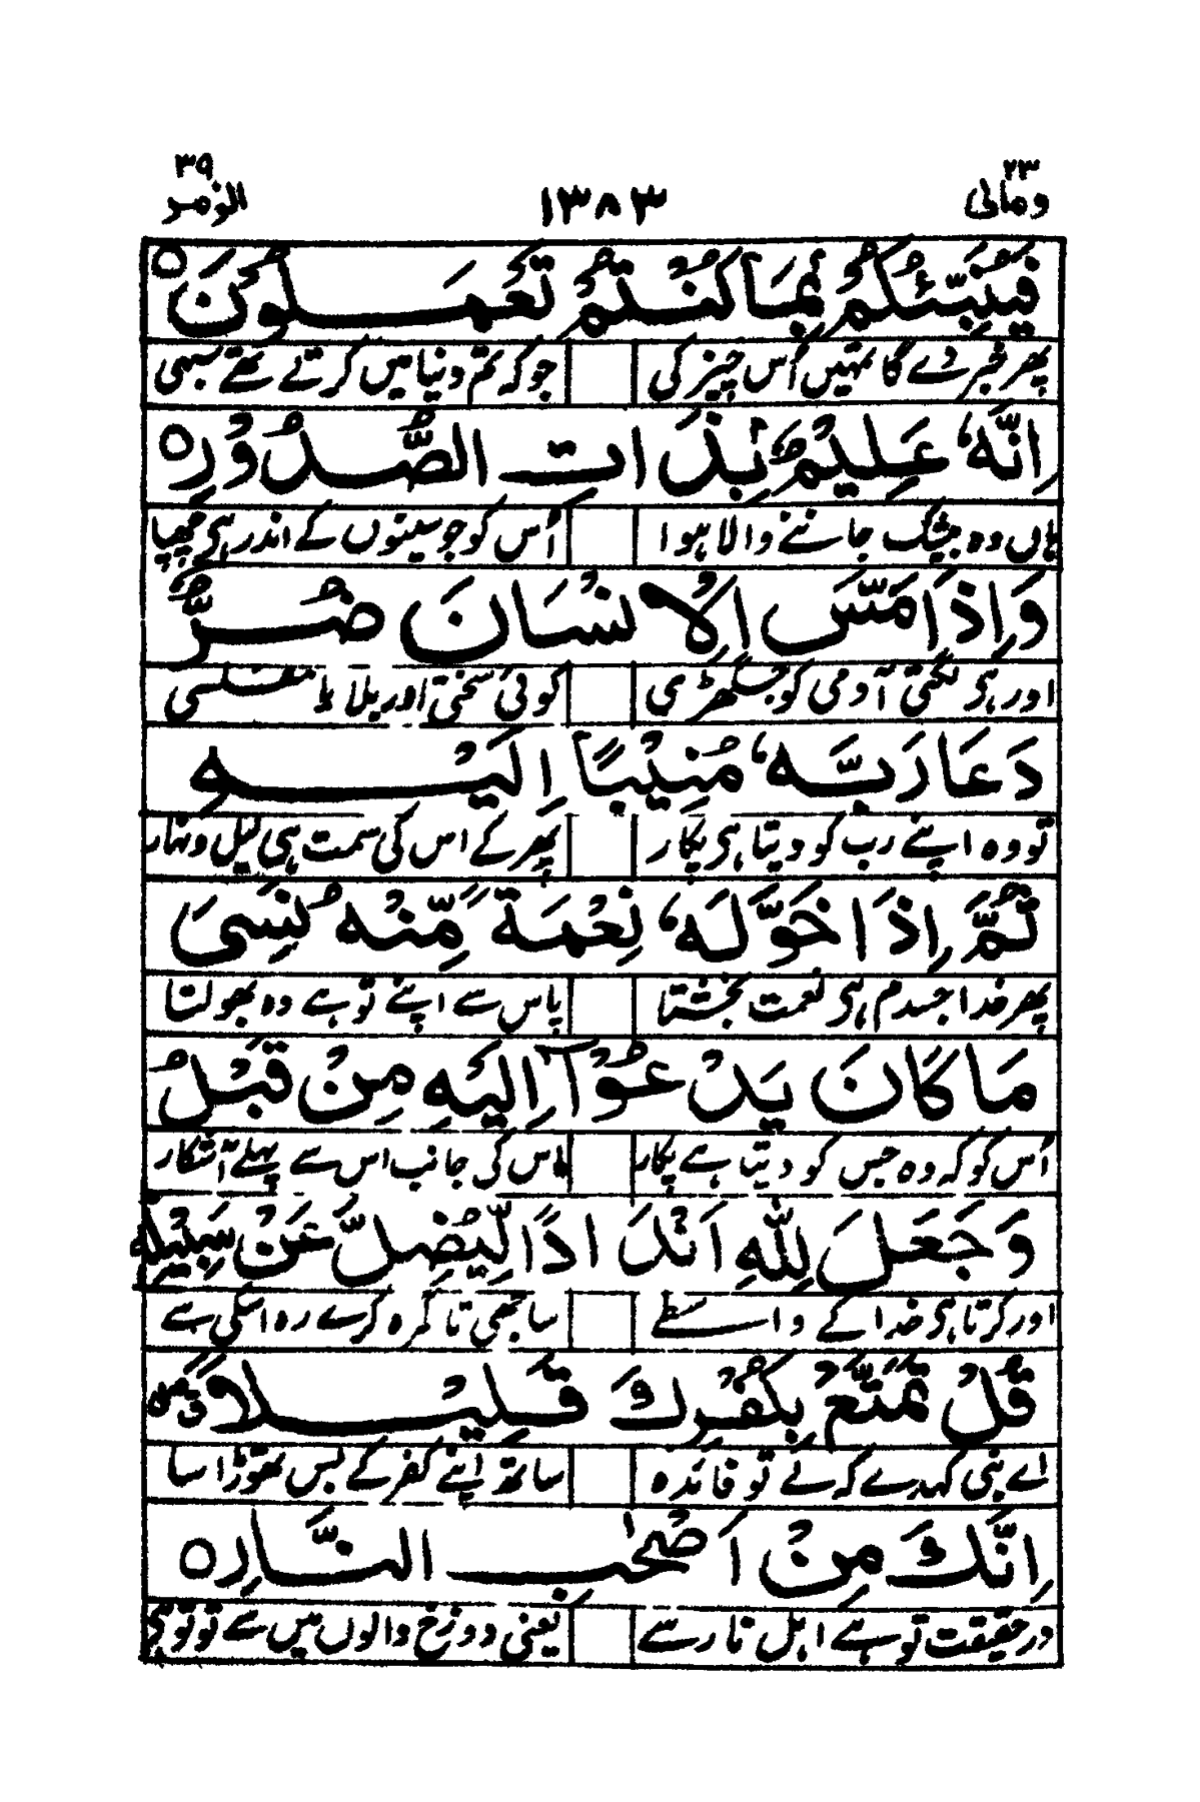 ومالی ٢٣ ١٣٨٣ الزمر ٣٩
فَيُنَبِّئُكُمْ بِمَا كُنْتُمْ تَعْمَلُوْنَ ○
پھر خبر دے گا تمہیں اُس چیز کی جو کہ تم دنیا میں کرتے تھے سبھی
اِنَّهٗ عَلِيْمٌۢ بِذَاتِ الصُّدُوْرِ ○
ہاں وہ بیشک جاننے والا ہوا اُس کو جو سینوں کے اندر ہی چھپا
وَاِذَا مَسَّ الْاِنْسَانَ ضُرٌّ
اور ہی لگتی آدمی کو جس گھڑی کوئی سختی اور بلا یا مفلسی
دَعَا رَبَّهٗ مُنِيْبًا اِلَيْهِ
تو وہ اپنے رب کو دیتا ہی پکار پھر کے اس کی سمت ہی لیل و نہار
ثُمَّ اِذَا خَوَّلَهٗ نِعْمَةً مِّنْهُ نَسِىَ
پھر خدا جس دم ہی نعمت بخشتا پاس سے اپنے تو ہے وہ بھولتا
مَا كَانَ يَدْعُوْٓا اِلَيْهِ مِنْ قَبْلُ
اُس کو کہ وہ جس کو دیتا ہے پکار اس کی جانب اس سے پہلے آشکار
وَجَعَلَ لِلّٰهِ اَنْدَادًا لِّيُضِلَّ عَنْ سَبِيْلِهٖ
اور کرتا ہی خدا کے واسطے ساجھی تا گمرہ کرے رہ اسکی سے
قُلْ تَمَتَّعْ بِكُفْرِكَ قَلِيْلًا
اے نبی کہدے کہ لے تو فائدہ ساتھ اپنے کفر کے بس تھوڑا سا
اِنَّكَ مِنْ اَصْحٰبِ النَّارِ ○
درحقیقت تو ہے اہل نار سے یعنی دوزخ والوں میں سے تو تو ہی